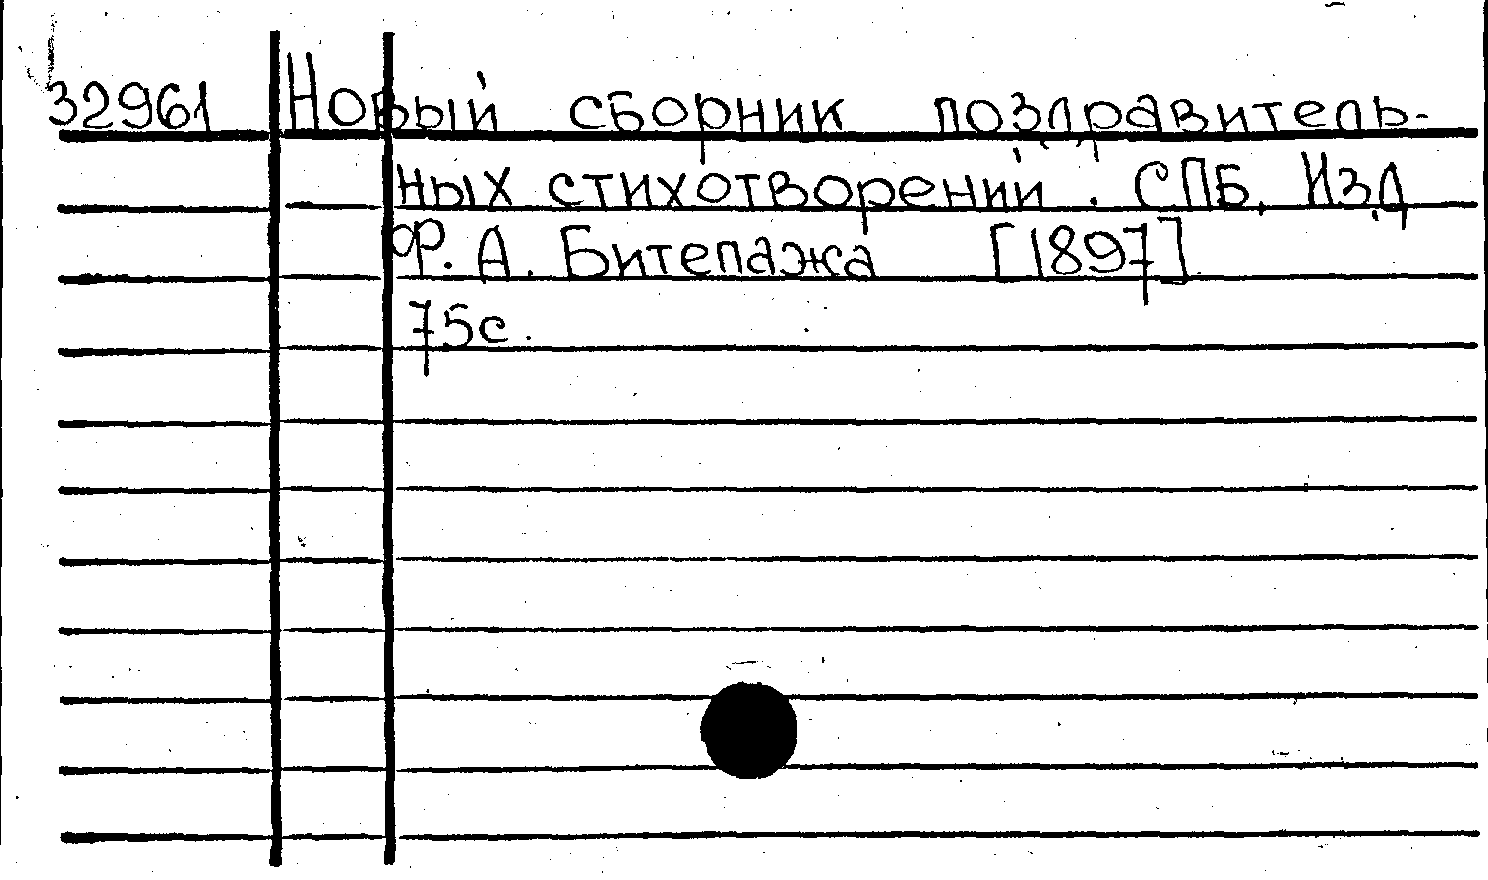 32961 Новый сборник поздравитель-
ных стихотворений. СПБ, Изд
Ф. А. Битепажа [1897]
75с.